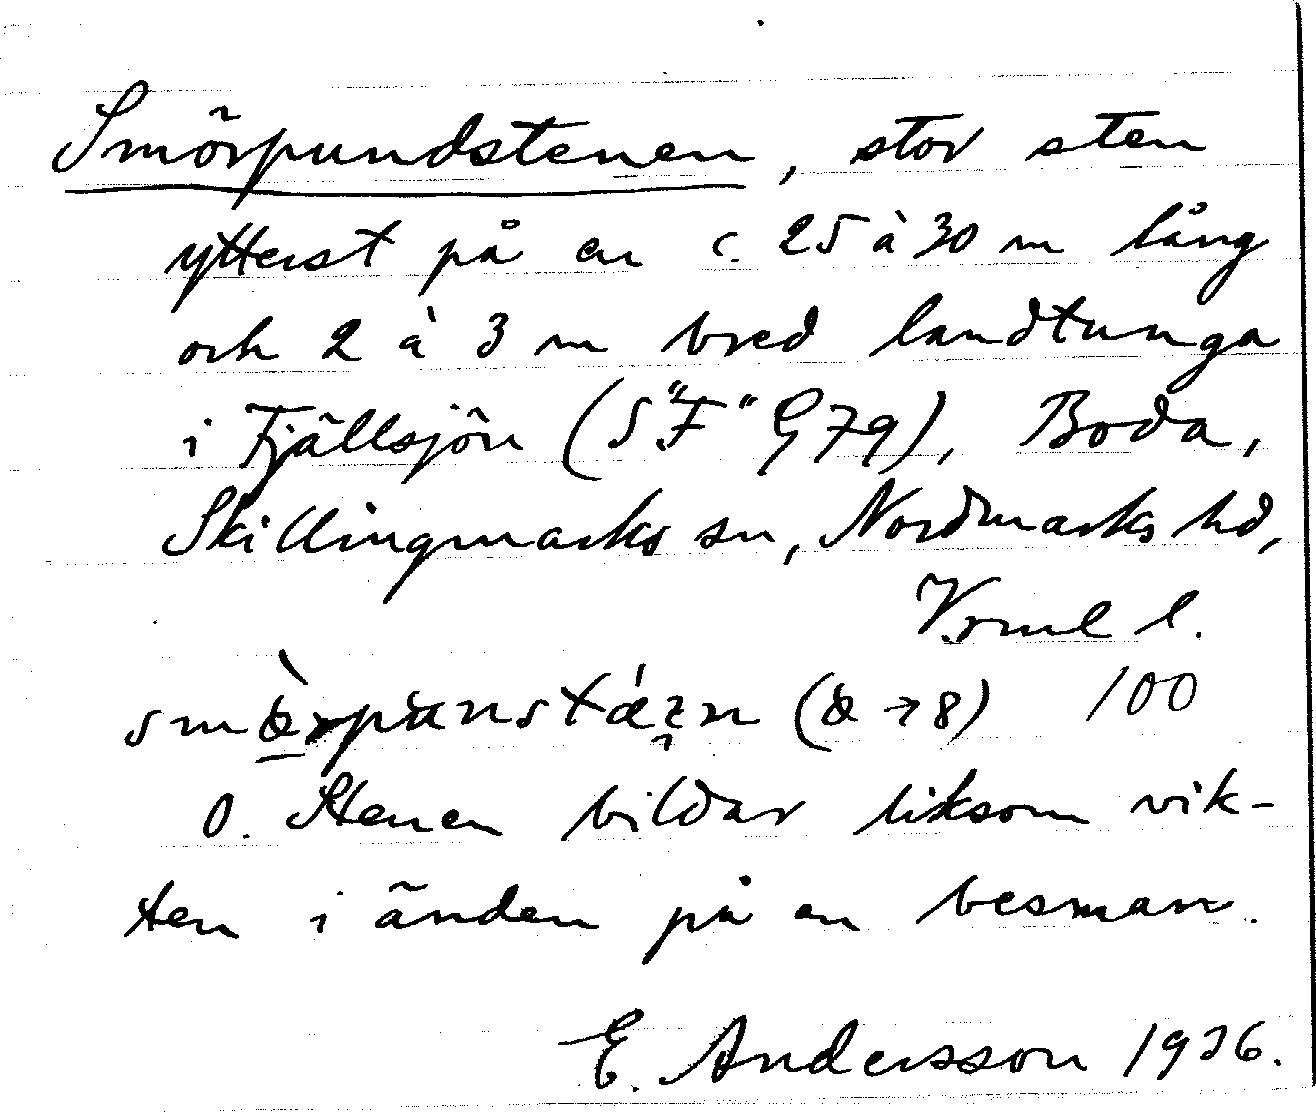 Smörpundstenen, stor sten
ytterst på en c. 25 à 30 m lång
och 2 à 3 m bred landtunga
i Fjällsjön (S "F" G 79), Boda,
Skillingmarks sn, Nordmarks hd,
Vrml l.
100
O. Stenen bildar liksom vik-
ten i änden på en besman.
E. Andersson 1936.